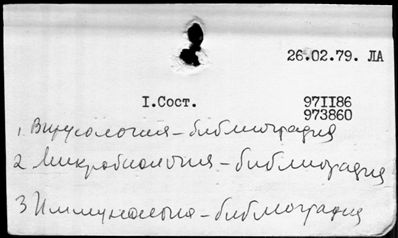 26.02.79. ЛА
I.Сост. 97II86
973860
1, Вирусология – библиография
2 Микробиология – библиография
3 Иммунология – библиография